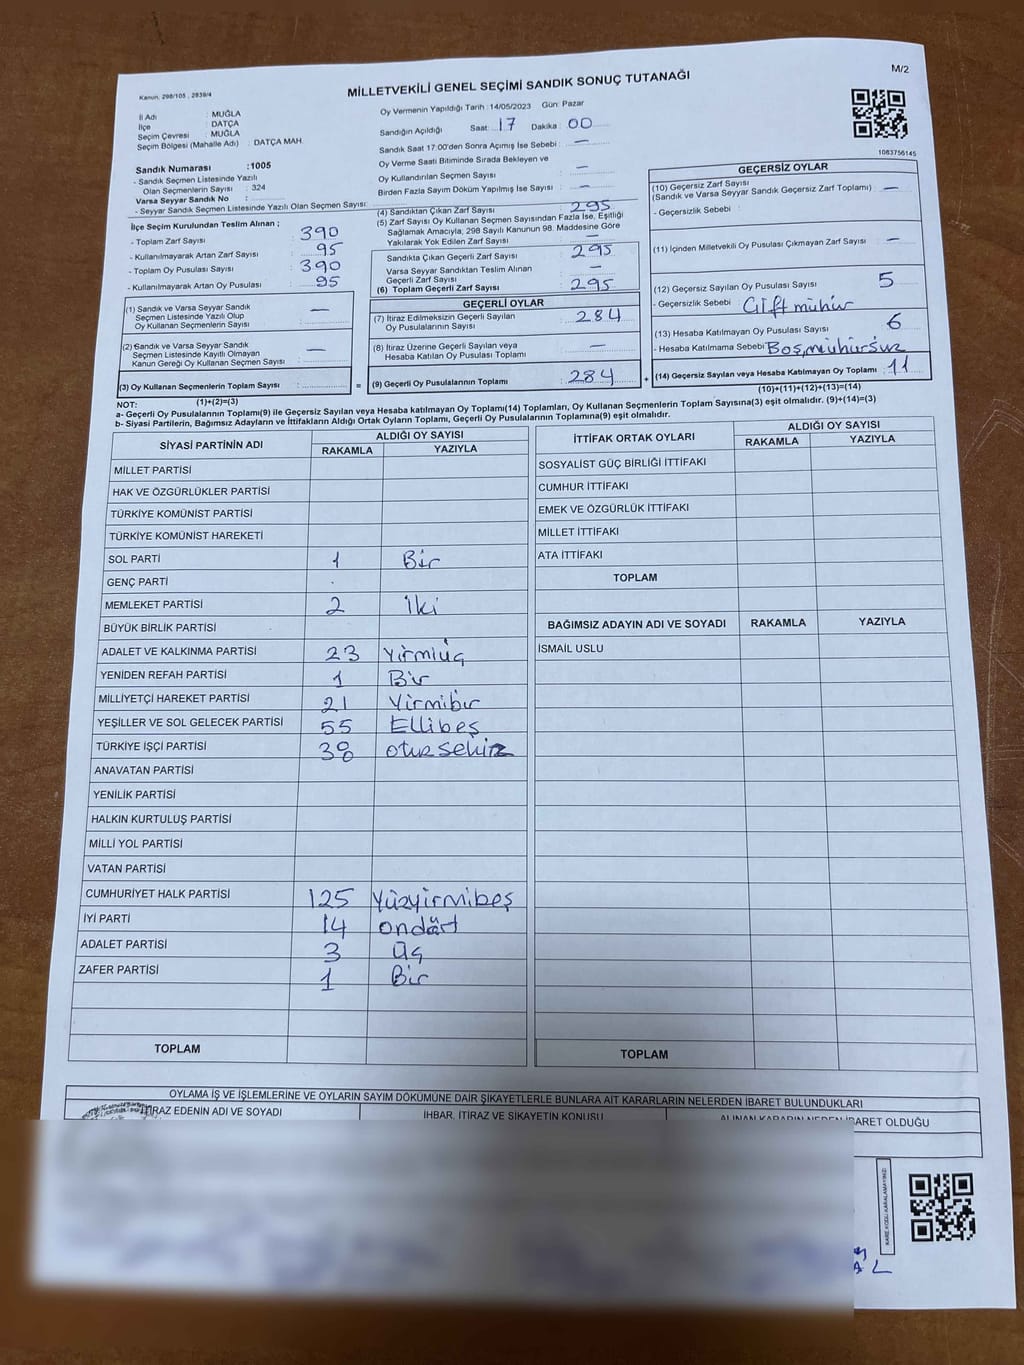 M/2
Kanun, 298/105 , 2839/4
MİLLETVEKİLİ GENEL SEÇİMİ SANDIK SONUÇ TUTANAĞI
İl Adı : MUĞLA
İlçe : DATÇA
Seçim Çevresi : MUĞLA
Seçim Bölgesi (Mahalle Adı) : DATÇA MAH.
Sandık Numarası :1005
- Sandık Seçmen Listesinde Yazılı
Olan Seçmenlerin Sayısı : 324
Varsa Seyyar Sandık No :
- Seyyar Sandık Seçmen Listesinde Yazılı Olan Seçmen Sayısı:
Oy Vermenin Yapıldığı Tarih : 14/05/2023 Gün: Pazar
Sandığın Açıldığı Saat: 17 Dakika : 00
Sandık Saat 17:00'den Sonra Açımış İse Sebebi : —
Oy Verme Saati Bitiminde Sırada Bekleyen ve
Oy Kullandırılan Seçmen Sayısı : —
Birden Fazla Sayım Döküm Yapılmış İse Sayısı : —
1083756145
İlçe Seçim Kurulundan Teslim Alınan ;
- Toplam Zarf Sayısı : 390
- Kullanılmayarak Artan Zarf Sayısı : 95
- Toplam Oy Pusulası Sayısı : 390
- Kullanılmayarak Artan Oy Pusulası : 95
(1) Sandık ve Varsa Seyyar Sandık
Seçmen Listesinde Yazılı Olup
Oy Kullanan Seçmenlerin Sayısı : —
(2) Sandık ve Varsa Seyyar Sandık
Seçmen Listesinde Kayıtlı Olmayan
Kanun Gereği Oy Kullanan Seçmen Sayısı : —
(3) Oy Kullanan Seçmenlerin Toplam Sayısı :
(1)+(2)=(3)
(4) Sandıktan Çıkan Zarf Sayısı : 295
(5) Zarf Sayısı Oy Kullanan Seçmen Sayısından Fazla İse, Eşitliği
Sağlamak Amacıyla, 298 Sayılı Kanunun 98. Maddesine Göre
Yakılarak Yok Edilen Zarf Sayısı : —
Sandıkta Çıkan Geçerli Zarf Sayısı : 295
Varsa Seyyar Sandıktan Teslim Alınan
Geçerli Zarf Sayısı : —
(6) Toplam Geçerli Zarf Sayısı : 295
GEÇERLİ OYLAR
(7) İtiraz Edilmeksizin Geçerli Sayılan
Oy Pusulalarının Sayısı : 284
(8) İtiraz Üzerine Geçerli Sayılan veya
Hesaba Katılan Oy Pusulası Toplamı : —
= (9) Geçerli Oy Pusulalarının Toplamı : 284
GEÇERSİZ OYLAR
(10) Geçersiz Zarf Sayısı
(Sandık ve Varsa Seyyar Sandık Geçersiz Zarf Toplamı) : —
- Geçersizlik Sebebi :
(11) İçinden Milletvekili Oy Pusulası Çıkmayan Zarf Sayısı : —
(12) Geçersiz Sayılan Oy Pusulası Sayısı : 5
- Geçersizlik Sebebi : Çift mühür
(13) Hesaba Katılmayan Oy Pusulası Sayısı : 6
- Hesaba Katılmama Sebebi : Boş, mühürsüz
+ (14) Geçersiz Sayılan veya Hesaba Katılmayan Oy Toplamı : 11
(10)+(11)+(12)+(13)=(14)
NOT:
a- Geçerli Oy Pusulalarının Toplamı(9) ile Geçersiz Sayılan veya Hesaba katılmayan Oy Toplamı(14) Toplamları, Oy Kullanan Seçmenlerin Toplam Sayısına(3) eşit olmalıdır. (9)+(14)=(3)
b- Siyasi Partilerin, Bağımsız Adayların ve İttifakların Aldığı Ortak Oyların Toplamı, Geçerli Oy Pusulalarının Toplamına(9) eşit olmalıdır.
SİYASİ PARTİNİN ADI ALDIĞI OY SAYISI
RAKAMLA YAZIYLA
MİLLET PARTİSİ
HAK VE ÖZGÜRLÜKLER PARTİSİ
TÜRKİYE KOMÜNİST PARTİSİ
TÜRKİYE KOMÜNİST HAREKETİ
SOL PARTİ 1 Bir
GENÇ PARTİ
MEMLEKET PARTİSİ 2 İki
BÜYÜK BİRLİK PARTİSİ
ADALET VE KALKINMA PARTİSİ 23 Yirmiüç
YENİDEN REFAH PARTİSİ 1 Bir
MİLLİYETÇİ HAREKET PARTİSİ 21 Yirmibir
YEŞİLLER VE SOL GELECEK PARTİSİ 55 Ellibeş
TÜRKİYE İŞÇİ PARTİSİ 38 otuzsekiz
ANAVATAN PARTİSİ
YENİLİK PARTİSİ
HALKIN KURTULUŞ PARTİSİ
MİLLİ YOL PARTİSİ
VATAN PARTİSİ
CUMHURİYET HALK PARTİSİ 125 Yüzyirmibeş
İYİ PARTİ 14 ondört
ADALET PARTİSİ 3 Üç
ZAFER PARTİSİ 1 Bir
TOPLAM
İTTİFAK ORTAK OYLARI ALDIĞI OY SAYISI
RAKAMLA YAZIYLA
SOSYALİST GÜÇ BİRLİĞİ İTTİFAKI
CUMHUR İTTİFAKI
EMEK VE ÖZGÜRLÜK İTTİFAKI
MİLLET İTTİFAKI
ATA İTTİFAKI
TOPLAM
BAĞIMSIZ ADAYIN ADI VE SOYADI RAKAMLA YAZIYLA
İSMAİL USLU
TOPLAM
OYLAMA İŞ VE İŞLEMLERİNE VE OYLARIN SAYIM DÖKÜMÜNE DAİR ŞİKAYETLERLE BUNLARA AİT KARARLARIN NELERDEN İBARET BULUNDUKLARI
İTİRAZ EDENİN ADI VE SOYADI İHBAR, İTİRAZ VE ŞİKAYETİN KONUSU ALINAN KARARIN NEDEN İBARET OLDUĞU
KARE KODU KARALAMAYINIZ!